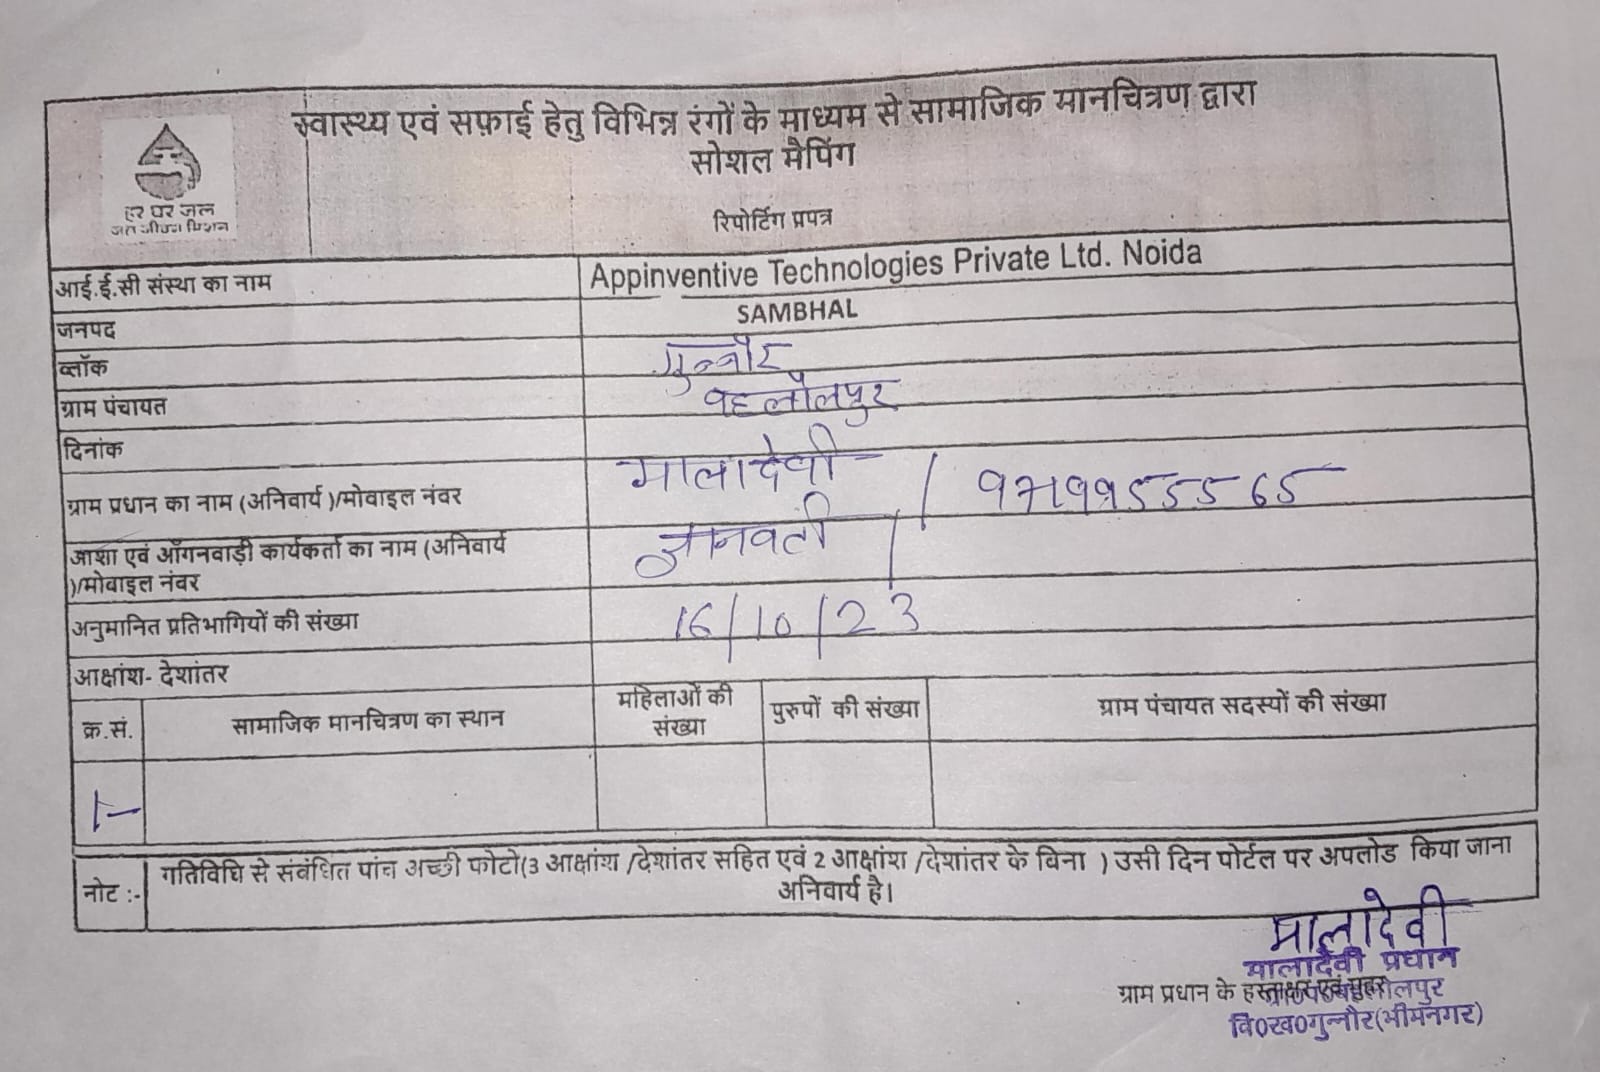 स्वास्थ्य एवं सफ़ाई हेतु विभिन्न रंगों के माध्यम से सामाजिक मानचित्रण द्वारा
सोशल मैपिंग
रिपोर्टिंग प्रपत्र
हर घर जल
जल जीवन मिशन
आई.ई.सी संस्था का नाम Appinventive Technologies Private Ltd. Noida
जनपद SAMBHAL
ब्लॉक गुन्नौर
ग्राम पंचायत वहलोलपुर
दिनांक
ग्राम प्रधान का नाम (अनिवार्य )/मोबाइल नंबर मालादेवी / 9719955565
आशा एवं आँगनवाड़ी कार्यकर्ता का नाम (अनिवार्य ज्ञानवती /
)/मोबाइल नंबर
अनुमानित प्रतिभागियों की संख्या 16/10/23
आक्षांश- देशांतर
क्र.सं. सामाजिक मानचित्रण का स्थान महिलाओं की संख्या पुरुषों की संख्या ग्राम पंचायत सदस्यों की संख्या
1-
नोट :- गतिविधि से संबंधित पांच अच्छी फोटो(3 आक्षांश /देशांतर सहित एवं 2 आक्षांश /देशांतर के बिना ) उसी दिन पोर्टल पर अपलोड किया जाना
अनिवार्य है।
मालादेवी
मालादेवी प्रधान
ग्राम प्रधान के हस्ताक्षर एवं मुहर
वि०ख०गुन्नौर(भीमनगर)